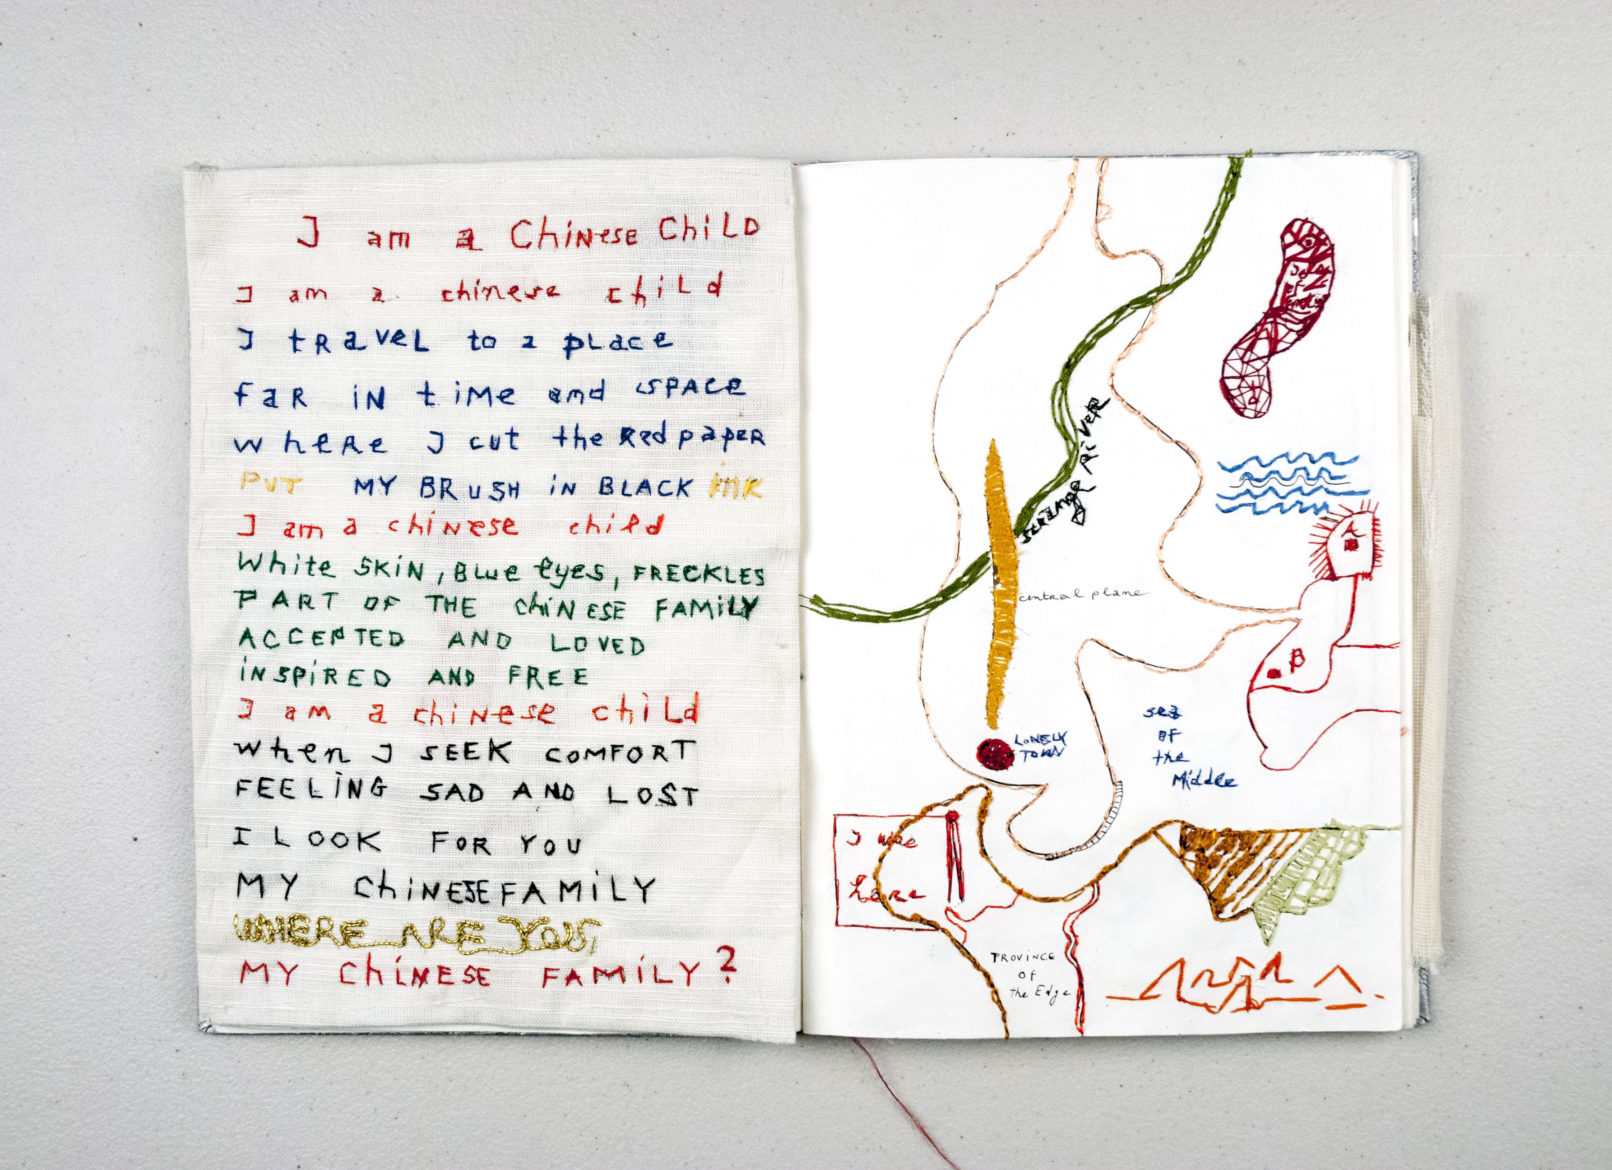 I am a Chinese Child
I am a chinese child
I travel to a place
far in time and space
where I cut the Red paper
PUT MY BRUSH iN BLACK iNK
I am a chinese child
White SKiN, BLue eyes, FRECKLES
PART OF THE ChiNESE FAMiLY
ACCEPTED AND LOVED
iNSPiRED AND FREE
I am a chinese child
When I SEEK COMFORT
FEELiNG SAD AND LOST
I LOOK FOR YOU
MY ChiNESE FAMiLY
WHERE ARE YOU,
MY ChiNESE FAMiLY?
strange River
central plane
LONELY
TOWN
sea
of
the
Middle
I was
here
PROVINCE
OF
the Edge